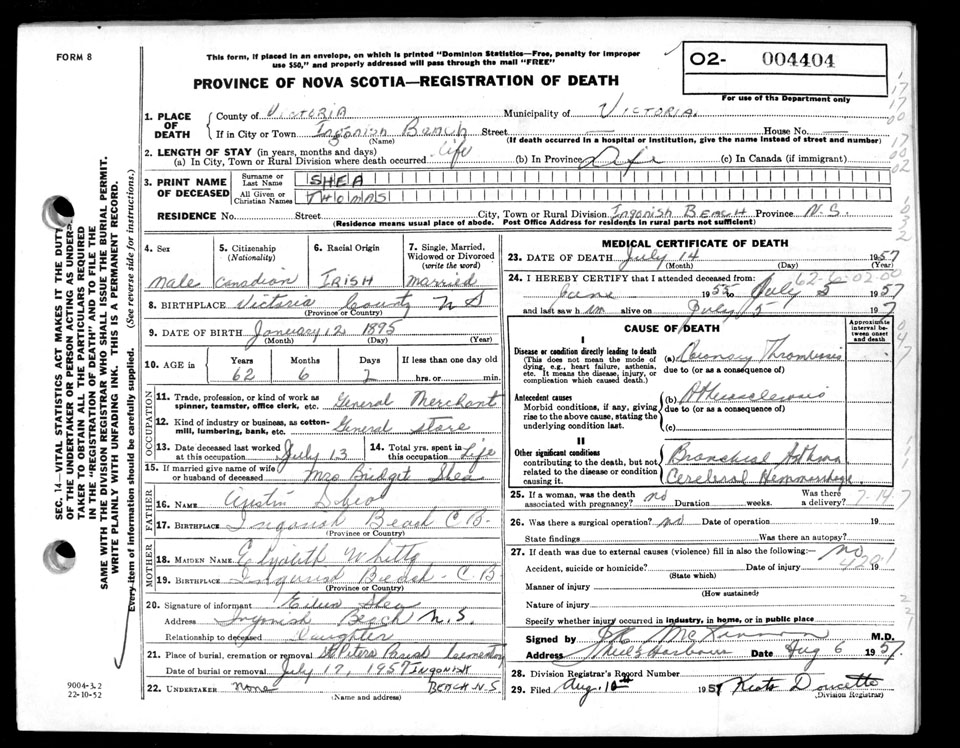 FORM 8
This form, if placed in an envelope, on which is printed "Dominion Statistics—Free, penalty for improper
use $50," and properly addressed will pass through the mail "FREE"
PROVINCE OF NOVA SCOTIA—REGISTRATION OF DEATH
02- 004404
For use of the Department only
1. PLACE OF DEATH
County of Victoria Municipality of Victoria.
If in City or Town Ingonish Beach Street — House No. —
(Name) (If death occurred in a hospital or institution, give the name instead of street and number)
2. LENGTH OF STAY (in years, months and days)
(a) In City, Town or Rural Division where death occurred Life (b) In Province Life (c) In Canada (if immigrant)
3. PRINT NAME OF DECEASED
Surname or Last Name SHEA
All Given or Christian Names THOMAS
RESIDENCE No. Street City, Town or Rural Division Ingonish Beach Province N.S.
(Residence means usual place of abode. Post Office Address for residents in rural parts not sufficient)
4. Sex 5. Citizenship (Nationality) 6. Racial Origin 7. Single, Married, Widowed or Divorced (write the word)
male Canadian IRISH Married
8. BIRTHPLACE Victoria County N S
(Province or Country)
9. DATE OF BIRTH January 12 1895
(Month) (Day) (Year)
10. AGE in Years Months Days If less than one day old
62 6 2 hrs. or min.
OCCUPATION
11. Trade, profession or kind of work as
spinner, teamster, office clerk, etc. General Merchant
12. Kind of industry or business, as cotton-
mill, lumbering, bank, etc. General Store
13. Date deceased last worked
at this occupation July 13
14. Total yrs. spent in
this occupation Life
15. If married give name of wife
or husband of deceased Mrs Bridget Shea
FATHER
16. NAME
17. BIRTHPLACE Ingonish Beach C B-
(Province or Country)
MOTHER
18. MAIDEN NAME Elizabeth Whitty
19. BIRTHPLACE Ingonish Beach - C B
(Province or Country)
20. Signature of informant Eileen Shea
Address Ingonish Beach N.S.
Relationship to deceased Daughter
21. Place of burial, cremation or removal St Peters Parish Cementery
Date of burial or removal July 17, 1957 INGONISH
22. UNDERTAKER None BEACH N.S
(Name and address)
MEDICAL CERTIFICATE OF DEATH
23. DATE OF DEATH July 14 1957
(Month) (Day) (Year)
24. I HEREBY CERTIFY that I attended deceased from:
June 1955 to July 5 1957
and last saw h im alive on July 5 1957
CAUSE OF DEATH
Approximate interval between onset and death
I
Disease or condition directly leading to death (a) Coronary Thrombosis
This does not mean the mode of
dying, e.g., heart failure, asthenia,
etc. It means the disease, injury, or
complication which caused death.
due to (or as a consequence of)
Antecedent causes (b) Atherosclerosis
Morbid conditions, if any, giving
rise to the above cause, stating the
underlying condition last.
due to (or as a consequence of)
(c)
II
Other significant conditions
contributing to the death, but not
related to the disease or condition
causing it.
Bronchial Asthma
Cerebral Hemmorhage
25. If a woman, was the death
associated with pregnancy? no Duration weeks. Was there
a delivery? 7-14-7
26. Was there a surgical operation? no Date of operation 19
State findings Was there an autopsy?
27. If death was due to external causes (violence) fill in also the following:— no
Accident, suicide or homicide? Date of injury 19
(State which)
4201
Manner of injury
(How sustained)
Nature of injury
Specify whether injury occurred in industry, in home, or in public place
Signed by McKinnon M.D.
Address Neil's Harbour Date Aug 6 1957
28. Division Registrar's Record Number
29. Filed Aug. 10th 1957 Doucette
(Division Registrar)
SEC. 14. VITAL STATISTICS ACT MAKES IT THE DUTY
OF THE UNDERTAKER OR PERSON ACTING AS UNDER-
TAKER TO OBTAIN ALL THE PARTICULARS REQUIRED
IN THE "REGISTRATION OF DEATH" AND TO FILE THE
SAME WITH THE DIVISION REGISTRAR WHO SHALL ISSUE THE BURIAL PERMIT.
WRITE PLAINLY WITH UNFADING INK. THIS IS A PERMANENT RECORD.
Every item of information should be carefully supplied. (See reverse side for instructions.)
9004-3.2
22-10-52